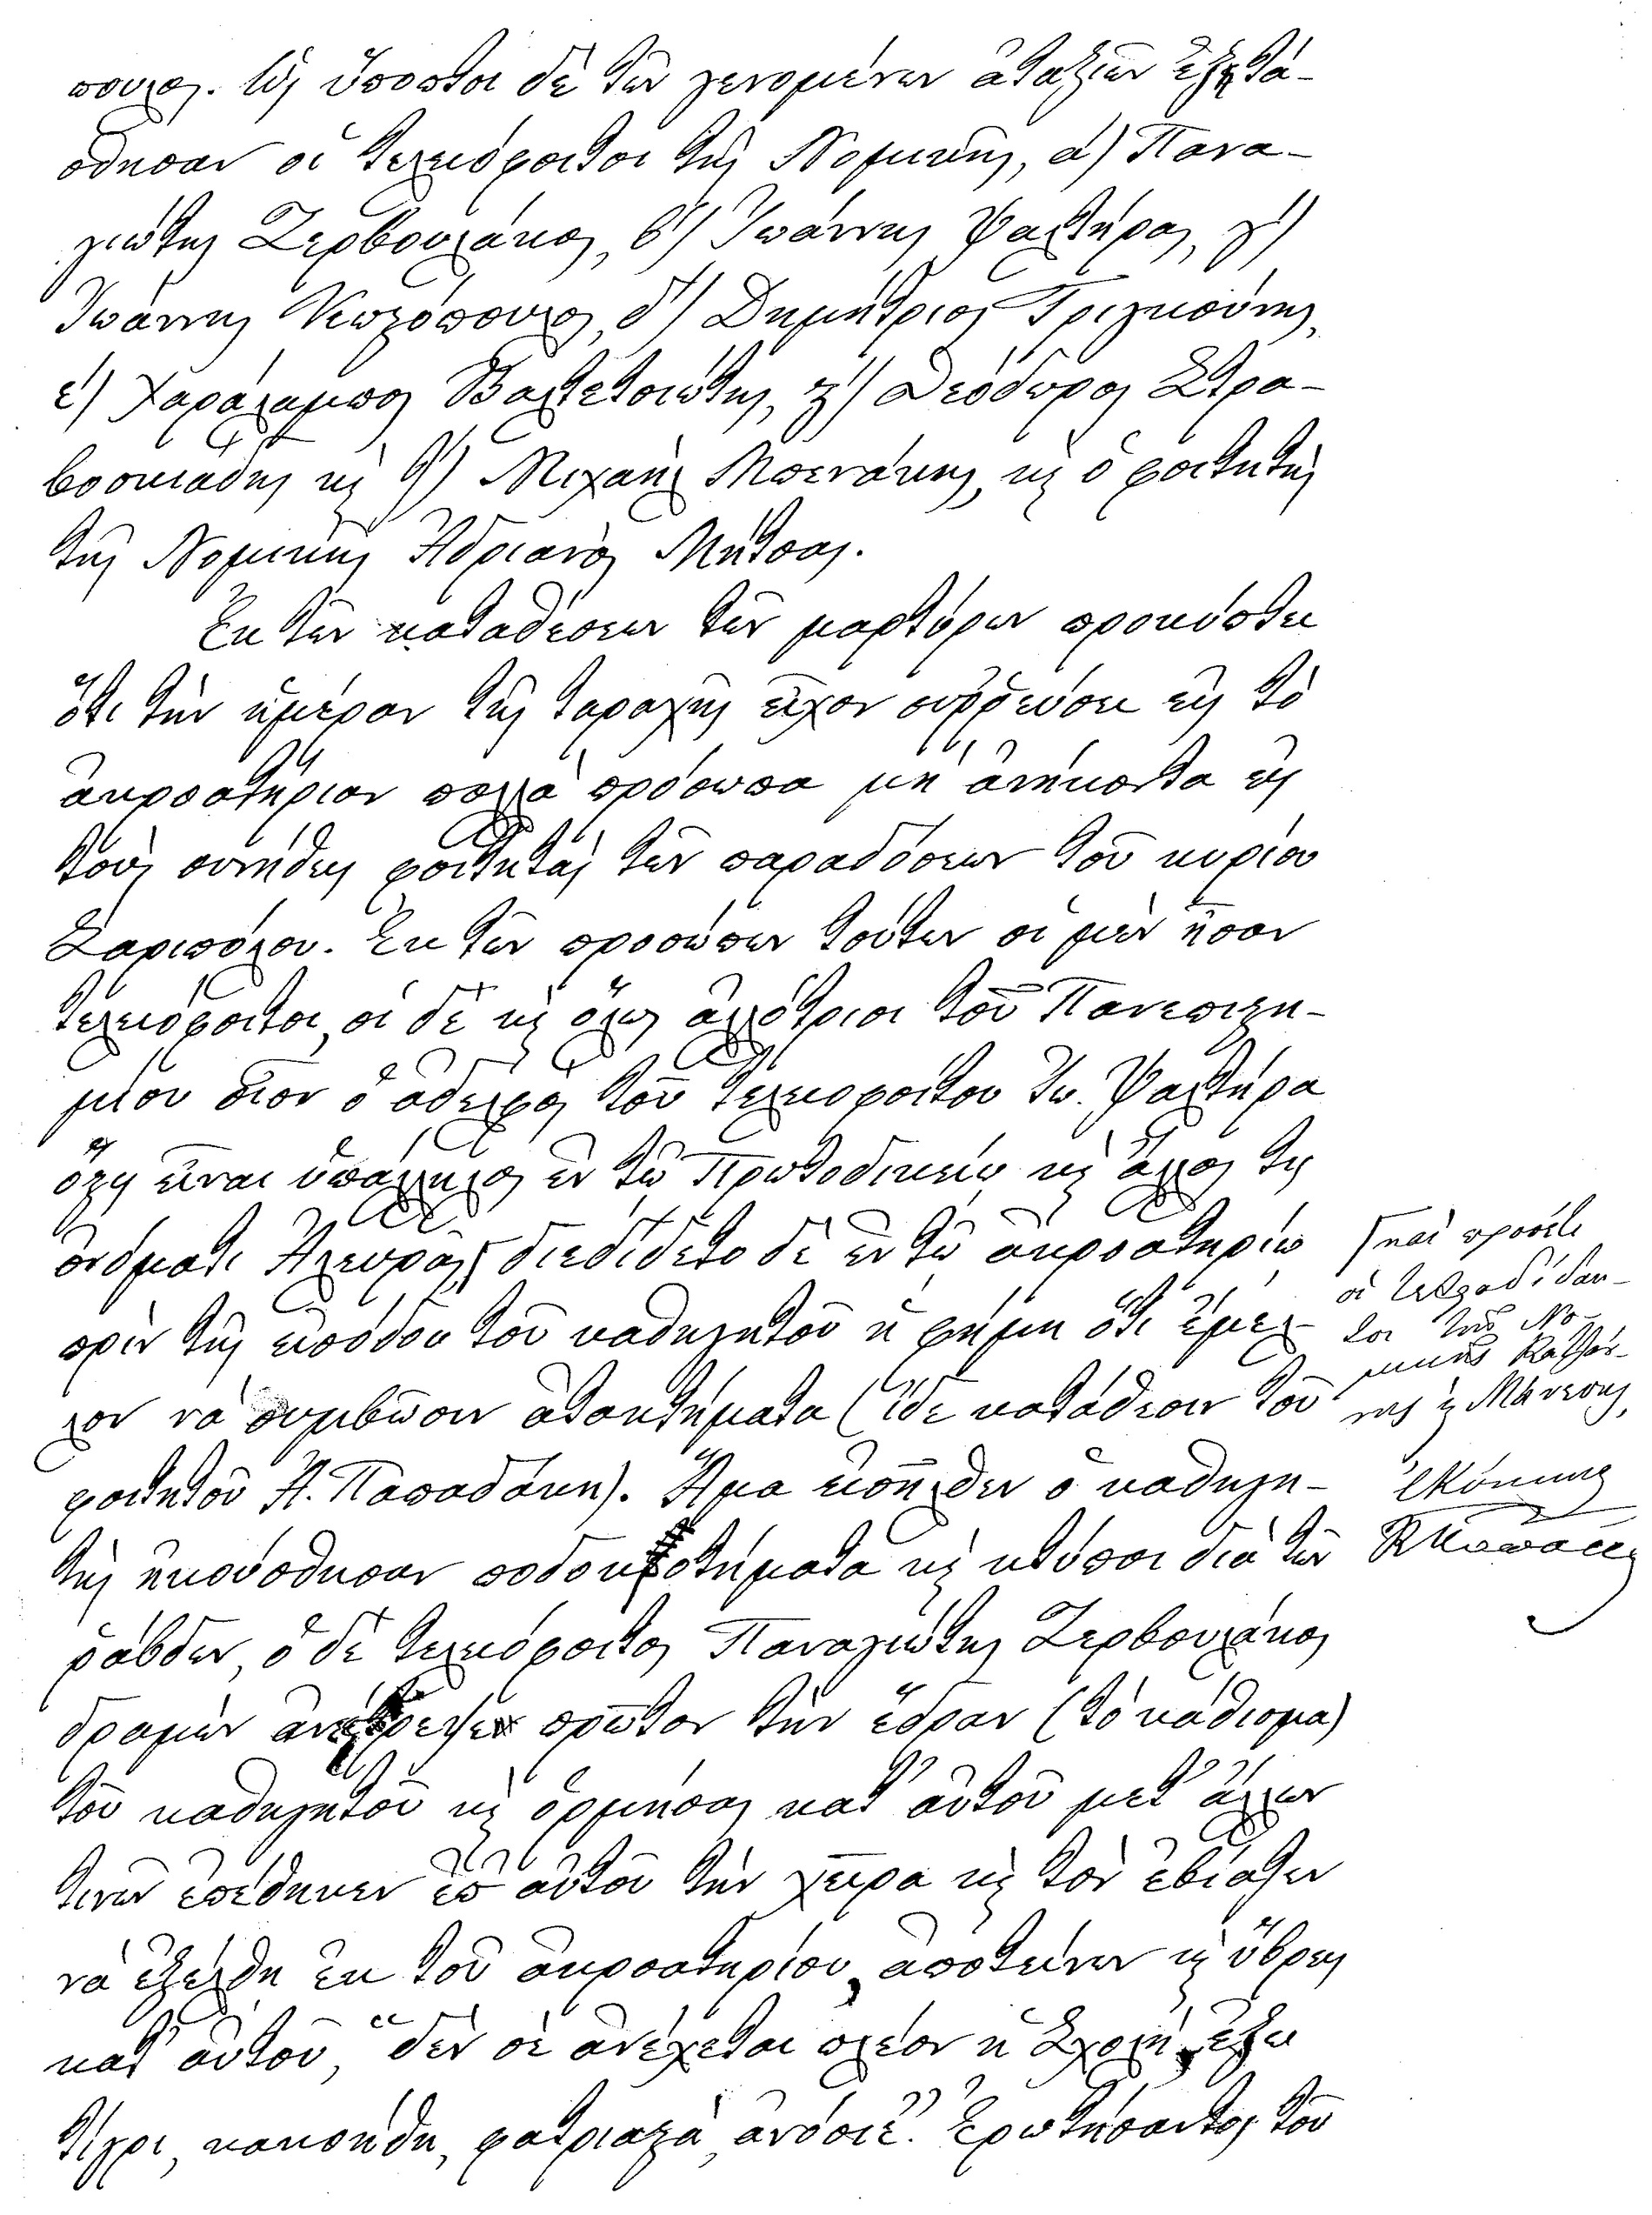 πουλος. Ὡς ὕποπτοι δὲ τῶν γενομένων ἀταξιῶν ἐξητά-
σθησαν οἱ τελειόφοιτοι τῆς Νομικῆς, α') Πανα-
γιώτης Ζερβουλάκος, β') Ἰωάννης Ψαλτήρας, γ')
Ἰωάννης Κωλόπουλος, δ') Δημήτριος Γριγκούνης,
ε') Χαράλαμπος Βαλτετσιώτης, ϛ') Θεόδωρος Στρα-
βοσκιάδης κὶ θ') Μιχαὴλ Μπενάκης, κὶ ὁ φοιτητὴς
τῆς Νομικῆς Ἀδριανὸς Μήτσας.
Ἐκ τῶν καταθέσεων τῶν μαρτύρων προκύπτει
ὅτι τὴν ἡμέραν τῆς ταραχῆς εἶχον συῤῥεύσει εἰς τὸ
ἀκροατήριον πολλὰ πρόσωπα μὴ ἀνήκοντα εἰς
τοὺς συνήθεις φοιτητὰς τῶν παραδόσεων τοῦ κυρίου
Σαριπόλου. Ἐκ τῶν προσώπων τούτων οἱ μὲν ἦσαν
τελειόφοιτοι, οἱ δὲ κὶ ὅλως ἀλλότριοι τοῦ Πανεπιστη-
μίου οἷον ὁ ἀδελφὸς τοῦ τελειοφοίτου Ἰω. Ψαλτήρα
ὅστις εἶναι ὑπάλληλος ἐν τῷ Πρωτοδικείῳ κὶ ἄλλος τις
ὀνόματι Ἀλευρᾶς, διεδίδετο δὲ ἐν τῷ ἀκροατηρίῳ
πρὶν τῆς εἰσόδου τοῦ καθηγητοῦ ἡ φήμη ὅτι ἔμελ-
λον νὰ συμβῶσιν ἀτακτήματα (ἴδε κατάθεσιν τοῦ
φοιτητοῦ Ἀ. Παπαδάκη). Ἅμα εἰσῆλθεν ὁ καθηγη-
τὴς ἠκούσθησαν ποδοκροτήματα κὶ κτύποι διὰ τῶν
ῥάβδων, ὁ δὲ τελειόφοιτος Παναγιώτης Ζερβουλάκος
δραμὼν ἀνέτρεψε πρῶτον τὴν ἕδραν (τὸ κάθισμα)
τοῦ καθηγητοῦ κὶ ὁρμήσας κατ' αὐτοῦ μετ' ἄλλων
τινῶν ἐπέθηκεν ἐπ' αὐτοῦ τὴν χεῖρα κὶ τὸν ἐβίαζεν
νὰ ἐξέλθῃ ἐκ τοῦ ἀκροατηρίου, ἀποτείνων κὶ ὕβρεις
κατ' αὐτοῦ, "δὲν σὲ ἀνέχεται πλέον ἡ Σχολή, ἔξω
τίγρι, κακοήθη, φατριαστὰ, ἀνόσιε". Ἐρωτήσαντος τοῦ
καὶ προσέτι
οἱ
τοι τῆς Νο-
μικῆς
κὶ Μάνεσης,